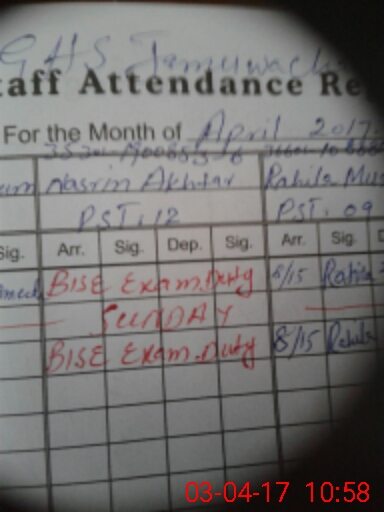 GHS
taff Attendance Re
For the Month of April 2017
Nasrin Akhtar Rahila
PST. 12 PST. 09
Sig. Arr. Sig. Dep. Sig. Arr. Sig. D
BISE Exam. Duty 8/15 Rahila
SUNDAY
BISE Exam. Duty 8/15 Rahila
03-04-17 10:58